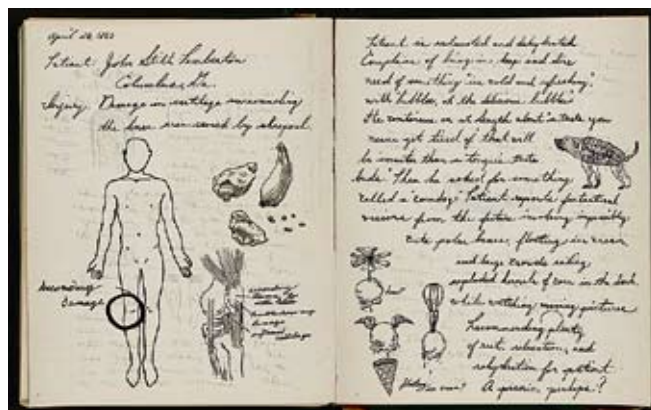 April 28, 1865
Patient: John Stith Pemberton
Columbus, Ga.
Injury: Damage on cartilage surrounding
the knee area caused by shrapnel.
Surrounding
Damage
surrounding
damage
cartilage
Patient is exhausted and dehydrated
Complains of being in deep and dire
need of something "ice cold and refreshing"
with bubbles, oh the delicious bubbles
He continues on at length about "a taste you
never get tired of that will
be sweeter than a tongue's taste
buds." Then he asked for something
called a coney. Patient reports fantastical
visions from the future involving impossibly
cute polar bears, floating ice cream
and large crowds eating
exploded kernels of corn in the dark
while watching moving pictures
Recommending plenty
of rest, relaxation, and
rehydration for patient
A genius, perhaps?